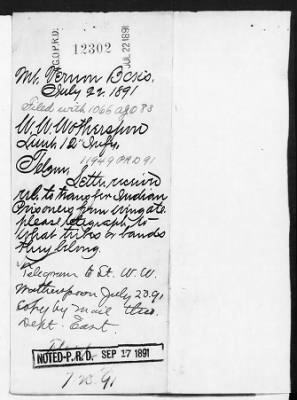 A.G.O.P.R.D.
12302
JUL 22 1891
Mt. Vernon Bcks.
July 22. 1891
Filed with 1066 AGO 83
W. W. Wotherspoon
Lieut. 12" Infy.
11949 PRD 91
Telgm.
Letter received
rel. to transfer Indian
Prisoners from Wingate.
please telegraph to
what tribes or bands
they belong.
Telegram to Lt. W. W.
Wotherspoon July 23. 91
copy by mail thro.
Dept. East.
NOTED-P.R.D. SEP 17 1891
7 23. 91